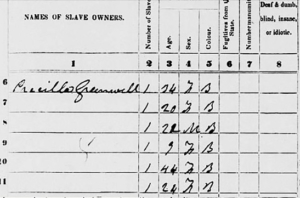 NAMES OF SLAVE OWNERS. Number of Slaves Age. Sex. Colour. Fugitives from State. Number manumitted Deaf & dumb, blind, insane, or idiotic.
1 2 3 4 5 6 7 8
6 Priscilla Greenwell 1 34 F B
7 1 20 F B
8 1 22 M B
9 1 9 F B
10 1 44 F B
11 1 24 F B